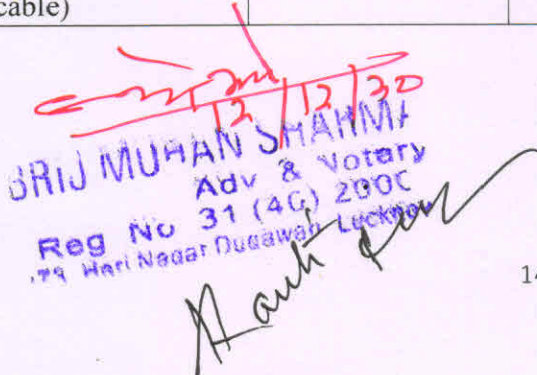 cable)
12/12/30
BRIJ MOHAN SHARMA
Adv & Notary
Reg No 31 (40) 2000
Hari Nagar Dugawan Lucknow
14